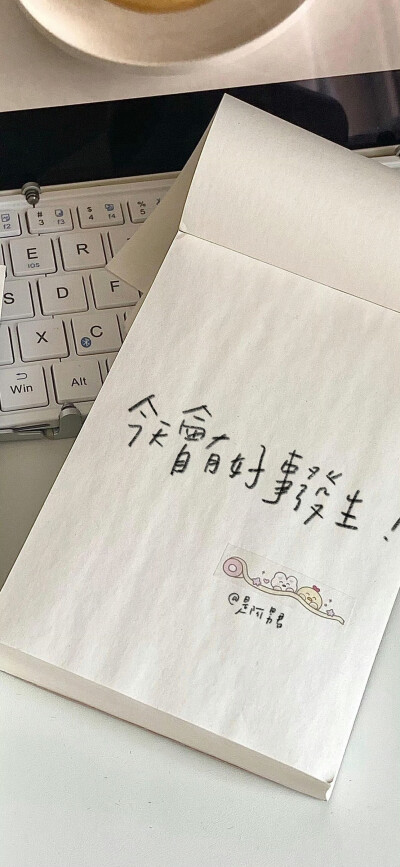 # 3 f3
$ 4 f4
% 5
f2
E iOS
R
S
D
F
X
C
Win
Alt
今天會有好事發生！
@是阿男君